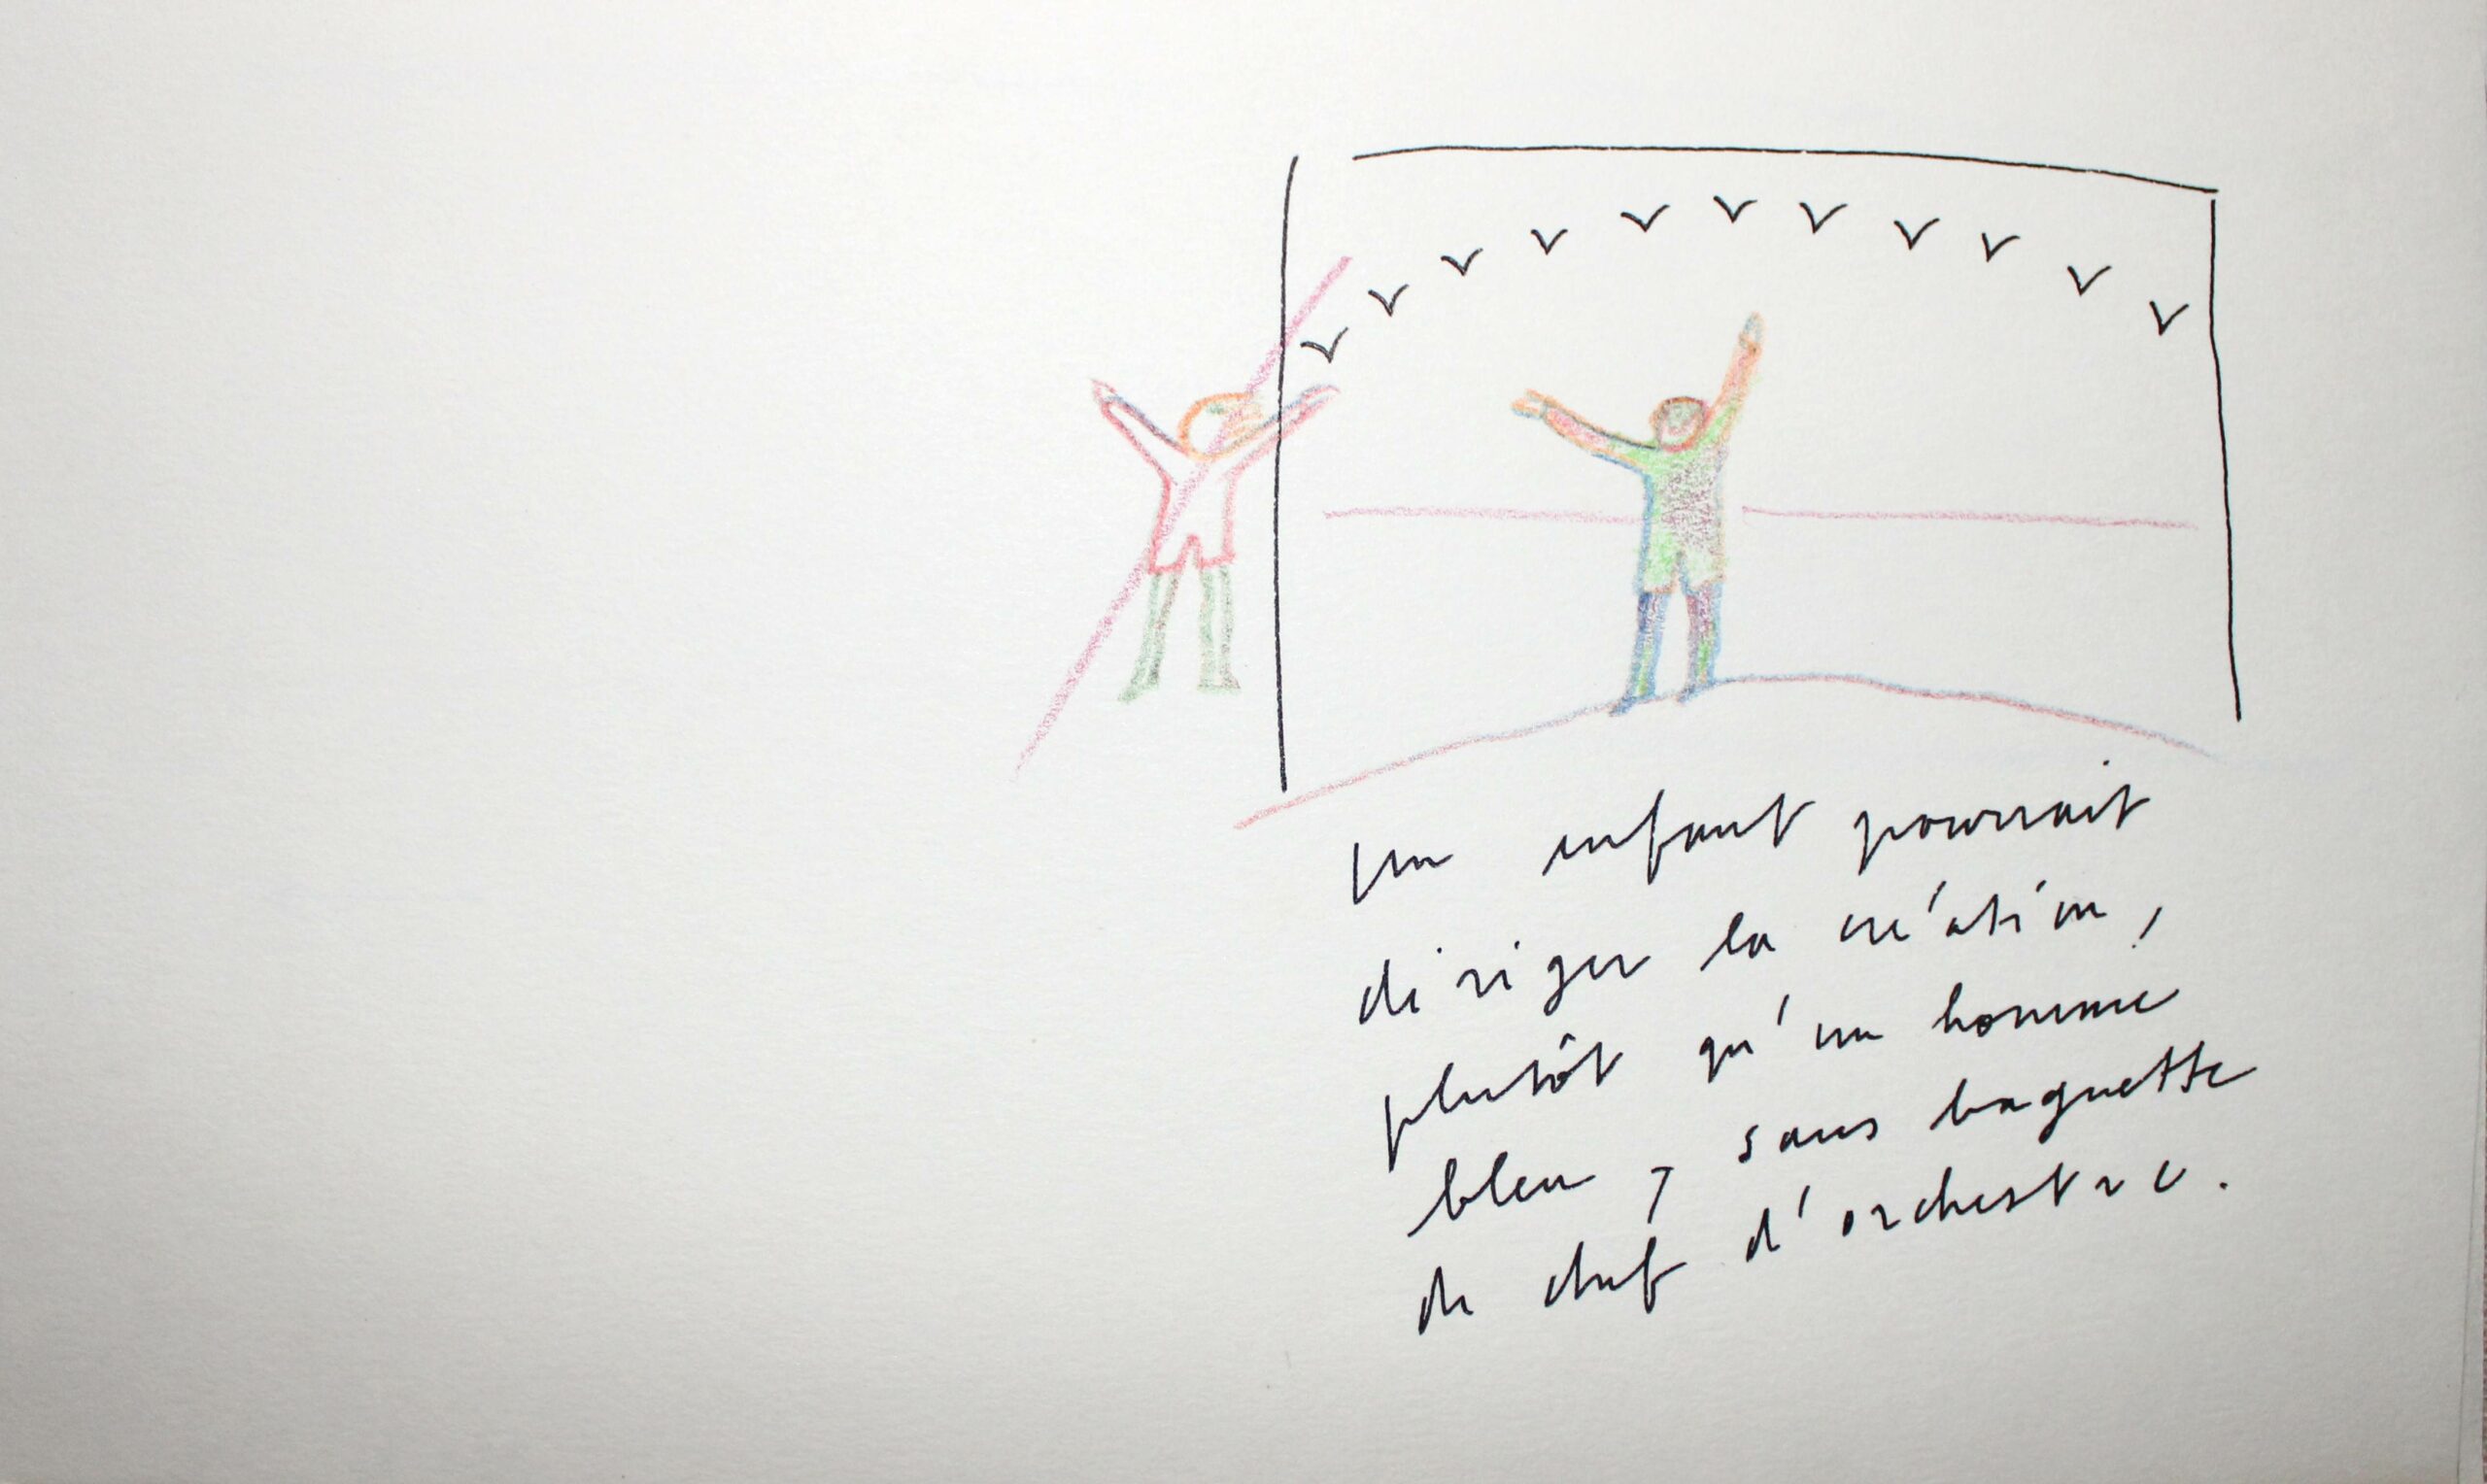 Un enfant pourrait
diriger la création,
plutôt qu'un homme
bleu, sans baguette
de chef d'orchestre.